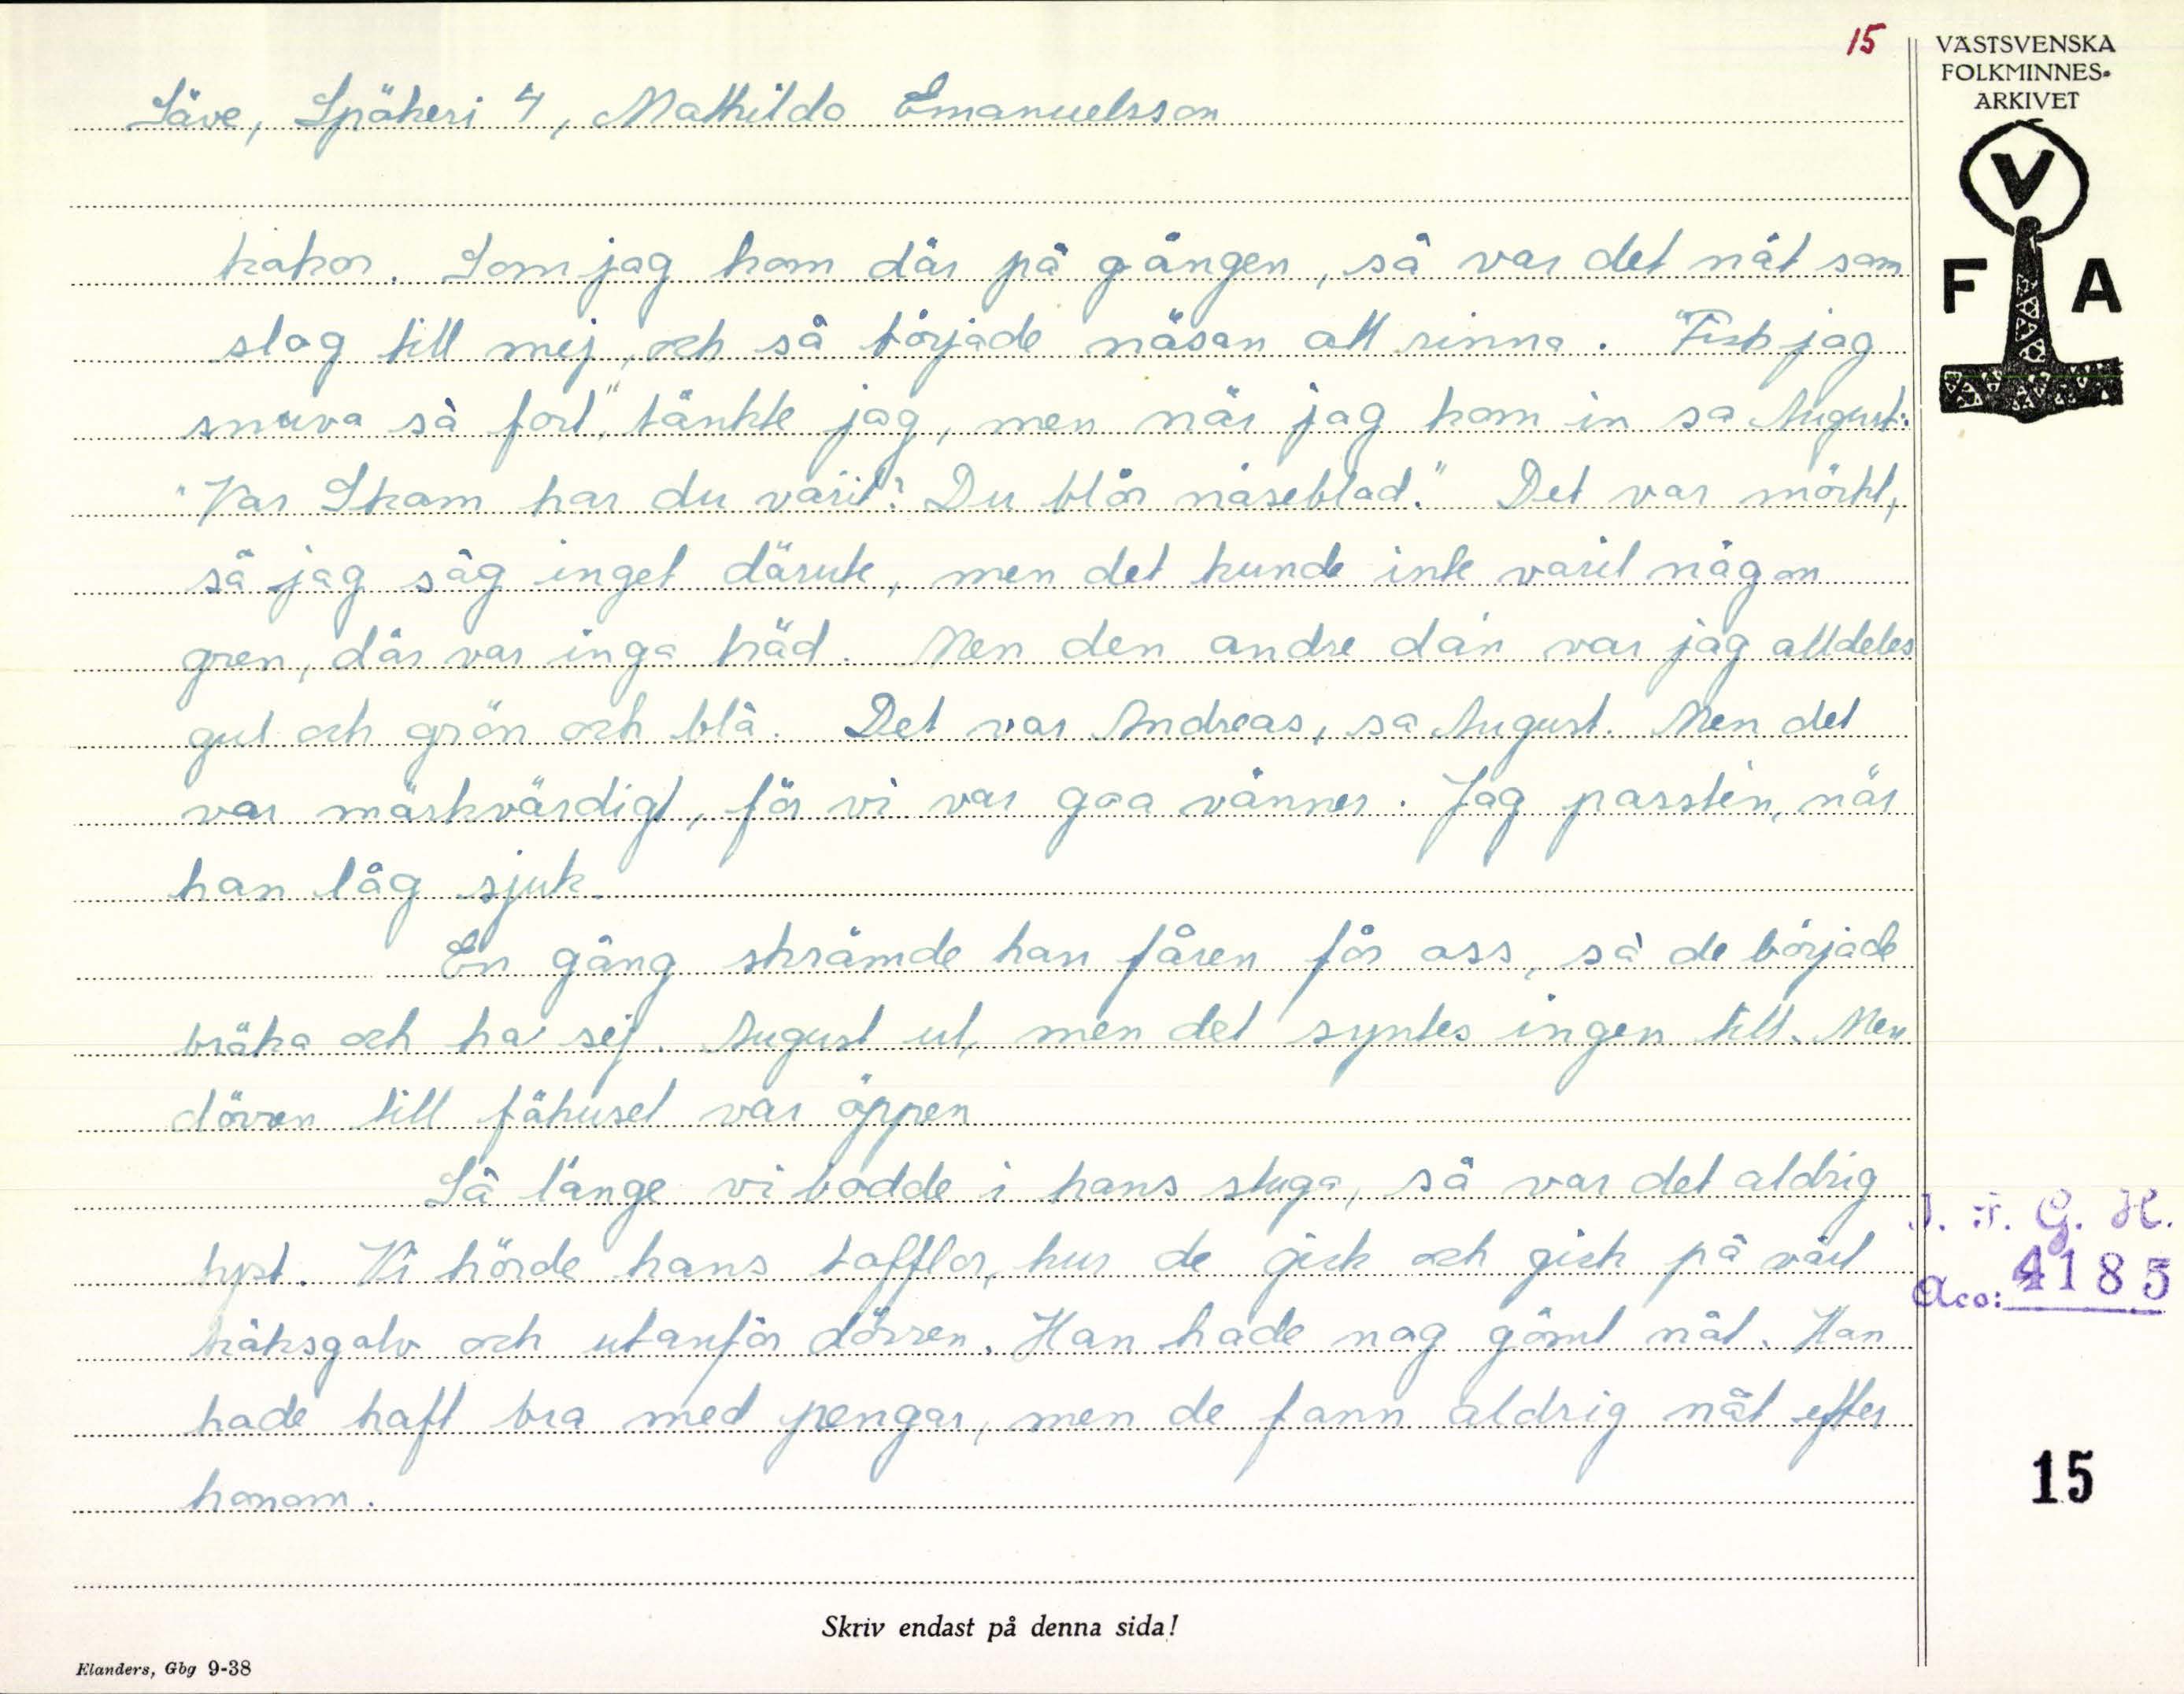 15
VÄSTSVENSKA
FOLKMINNES-
ARKIVET
V
F A
Säve, Spökeri 4, Mathilda Emanuelsson
kakor. Som jag kom där på gången, så var det nåt som
slog till mej, och så började näsan att rinna. "Fick jag
snuva så fort", tänkte jag, men när jag kom in sa August:
"Var Skam har du varit? Du blör näseblod." Det var mörkt,
så jag såg inget därute, men det kunde inte varit någon
gren, där var inga träd. Men den andre dan var jag alldeles
gul och grön och blå. Det var Andreas, sa August. Men det
var märkvärdigt, för vi var goa vänner. Jag passte'n, när
han låg sjuk.
En gång skrämde han fåren för oss, så de började
bräka och ha' sej. August ut, men det syntes ingen till. Men
dörren till fähuset var öppen
Så länge vi bodde i hans stuga, så var det aldrig
tyst. Vi hörde hans tofflor, hur de gick och gick på vårt
köksgolv och utanför dörren. Han hade nog gömt nåt. Han
hade haft bra med pengar, men de fann aldrig nåt efter
honom.
I. F. G. H.
Acc: 4185
15
Skriv endast på denna sida!
Elanders, Gbg 9-38